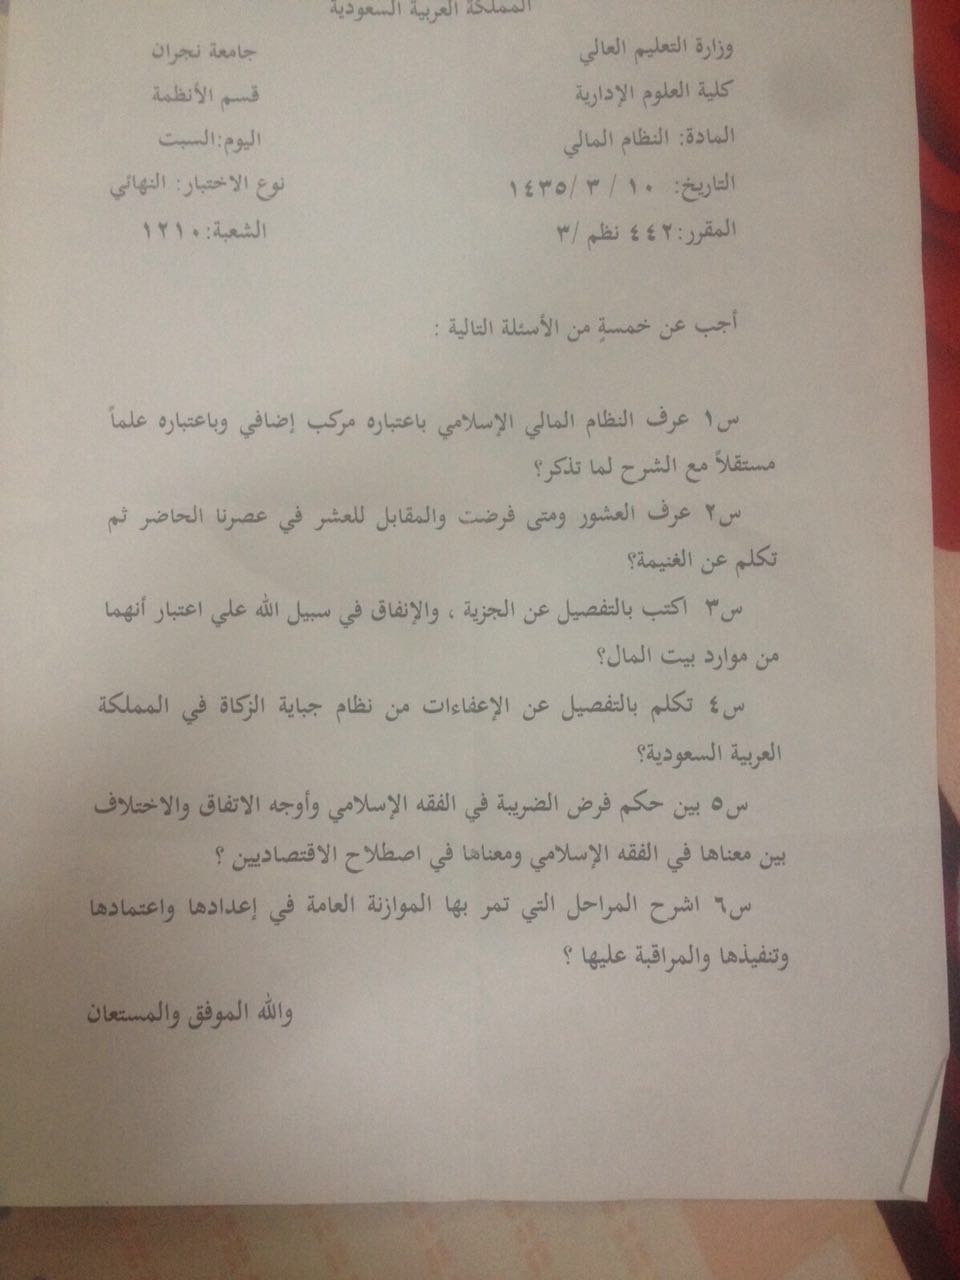 المملكة العربية السعودية
وزارة التعليم العالي جامعة نجران
كلية العلوم الإدارية قسم الأنظمة
المادة: النظام المالي اليوم:السبت
التاريخ: ١٠ / ٣ /١٤٣٥ نوع الاختبار: النهائي
المقرر:٤٤٢ نظم /٣ الشعبة:١٢١٠
أجب عن خمسةٍ من الأسئلة التالية :
س١ عرف النظام المالي الإسلامي باعتباره مركب إضافي وباعتباره علماً
مستقلاً مع الشرح لما تذكر؟
س٢ عرف العشور ومتى فرضت والمقابل للعشر في عصرنا الحاضر ثم
تكلم عن الغنيمة؟
س٣ اكتب بالتفصيل عن الجزية ، والإنفاق في سبيل الله علي اعتبار أنهما
من موارد بيت المال؟
س٤ تكلم بالتفصيل عن الإعفاءات من نظام جباية الزكاة في المملكة
العربية السعودية؟
س٥ بين حكم فرض الضريبة في الفقه الإسلامي وأوجه الاتفاق والاختلاف
بين معناها في الفقه الإسلامي ومعناها في اصطلاح الاقتصاديين ؟
س٦ اشرح المراحل التي تمر بها الموازنة العامة في إعدادها واعتمادها
وتنفيذها والمراقبة عليها ؟
والله الموفق والمستعان